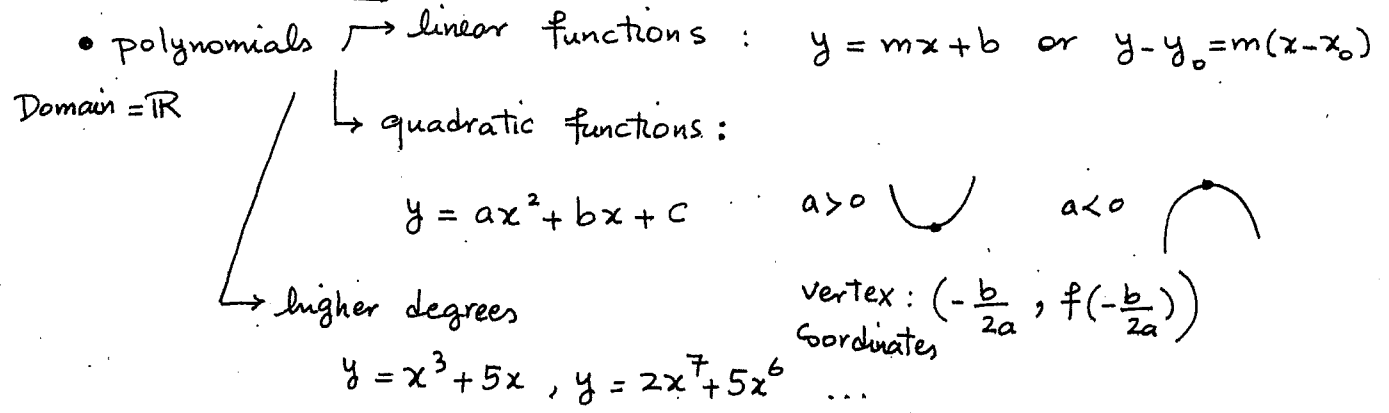 • polynomials → linear functions : y = mx + b or y - y₀ = m(x - x₀)
Domain = ℝ
↳ quadratic functions :
y = ax² + bx + c a>0 a<0
→ higher degrees
vertex : (-b/2a , f(-b/2a))
Coordinates
y = x³ + 5x , y = 2x⁷ + 5x⁶ ...